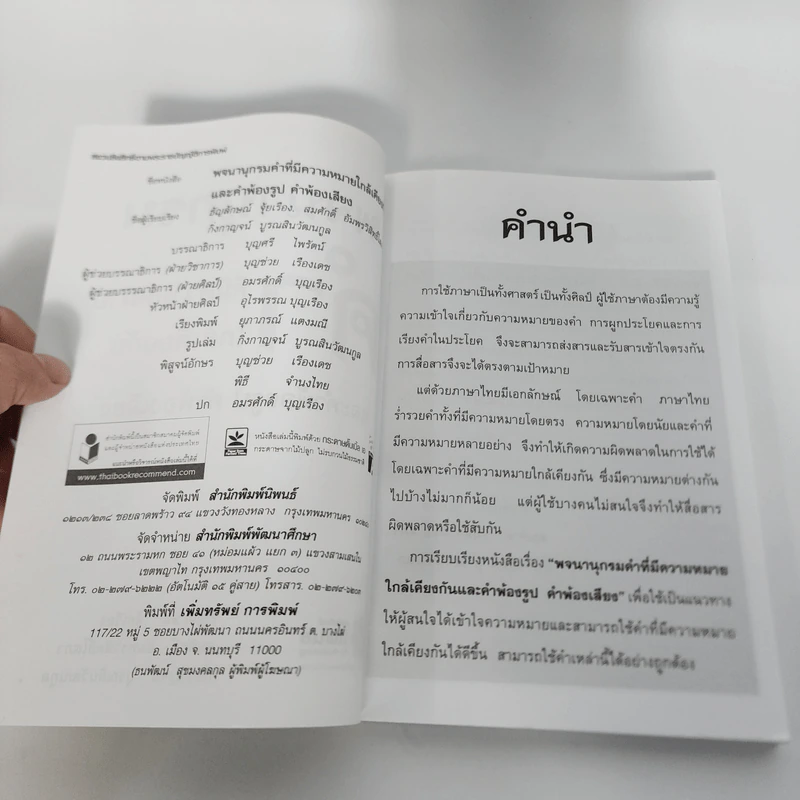 สงวนลิขสิทธิ์ตามพระราชบัญญัติการพิมพ์
ชื่อหนังสือ พจนานุกรมคำที่มีความหมายใกล้เคียงกัน
และคำพ้องรูป คำพ้องเสียง
ชื่อผู้เรียบเรียง ธัญลักษณ์ จุ้ยเรือง. สมศักดิ์
กิ่งกาญจน์ บูรณสินวัฒนกูล
บรรณาธิการ บุญศรี ไพรัตน์
ผู้ช่วยบรรณาธิการ (ฝ่ายวิชาการ) บุญช่วย เรืองเดช
ผู้ช่วยบรรณาธิการ (ฝ่ายศิลป์) อมรศักดิ์ บุญเรือง
หัวหน้าฝ่ายศิลป์ อุไรพรรณ บุญเรือง
เรียงพิมพ์ ยุภาภรณ์ แตงมณี
รูปเล่ม กิ่งกาญจน์ บูรณสินวัฒนกูล
พิสูจน์อักษร บุญช่วย เรืองเดช
พิธี จำนงไทย
ปก อมรศักดิ์ บุญเรือง
สำนักพิมพ์นี้เป็นสมาชิกสมาคมผู้จัดพิมพ์
และผู้จำหน่ายหนังสือแห่งประเทศไทย
แนะนำหรือวิจารณ์หนังสือเล่มนี้ได้ที่
www.thaibookrecommend.com
หนังสือเล่มนี้พิมพ์ด้วย กระดาษดับเบิ้ล เอ
กระดาษจากไม้ปลูก ไม่รบกวนไม้ธรรมชาติ
จัดพิมพ์ สำนักพิมพ์นิพนธ์
๑๒๑๓/๒๓๔ ซอยลาดพร้าว ๙๔ แขวงวังทองหลาง กรุงเทพมหานคร
จัดจำหน่าย สำนักพิมพ์พัฒนาศึกษา
๑๒ ถนนพระรามหก ซอย ๔๑ (หม่อมแผ้ว แยก ๓) แขวงสามเสนใน
เขตพญาไท กรุงเทพมหานคร ๑๐๔๐๐
โทร. ๐๒-๒๗๙-๖๒๒๒ (อัตโนมัติ ๑๕ คู่สาย) โทรสาร.
พิมพ์ที่ เพิ่มทรัพย์ การพิมพ์
117/22 หมู่ 5 ซอยบางไผ่พัฒนา ถนนนครอินทร์ ต. บางไผ่
อ. เมือง จ. นนทบุรี 11000
(ธนพัฒน์ สุขมงคลกุล ผู้พิมพ์ผู้โฆษณา)
คำนำ
การใช้ภาษาเป็นทั้งศาสตร์ เป็นทั้งศิลป์ ผู้ใช้ภาษาต้องมีความรู้
ความเข้าใจเกี่ยวกับความหมายของคำ การผูกประโยคและการ
เรียงคำในประโยค จึงจะสามารถส่งสารและรับสารเข้าใจตรงกัน
การสื่อสารจึงจะได้ตรงตามเป้าหมาย
แต่ด้วยภาษาไทยมีเอกลักษณ์ โดยเฉพาะคำ ภาษาไทย
ร่ำรวยคำทั้งที่มีความหมายโดยตรง ความหมายโดยนัยและคำที่
มีความหมายหลายอย่าง จึงทำให้เกิดความผิดพลาดในการใช้ได้
โดยเฉพาะคำที่มีความหมายใกล้เคียงกัน ซึ่งมีความหมายต่างกัน
ไปบ้างไม่มากก็น้อย แต่ผู้ใช้บางคนไม่สนใจจึงทำให้สื่อสาร
ผิดพลาดหรือใช้สับกัน
การเรียบเรียงหนังสือเรื่อง "พจนานุกรมคำที่มีความหมาย
ใกล้เคียงกันและคำพ้องรูป คำพ้องเสียง" เพื่อใช้เป็นแนวทาง
ให้ผู้สนใจได้เข้าใจความหมายและสามารถใช้คำที่มีความหมาย
ใกล้เคียงกันได้ดีขึ้น สามารถใช้คำเหล่านี้ได้อย่างถูกต้อง